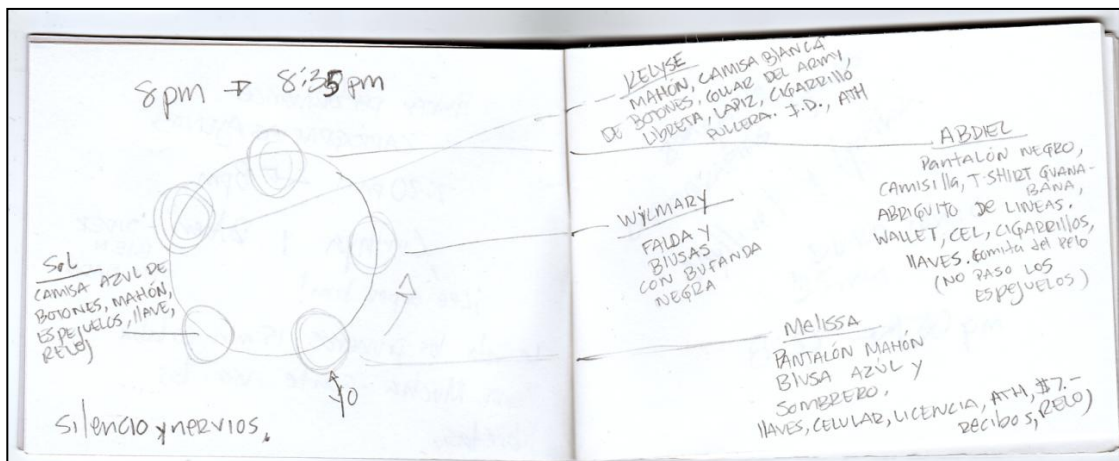 8pm → 8:35pm
Sol
CAMISA AZUL DE
BOTONES, MAHÓN,
ESPEJUELOS, llAVE,
RELOJ
YO
silencio y nervios.
KELYSE
MAHÓN, CAMISA BlANCA
DE BOTONES, COLLAR DEL ARMY,
LIBRETA, LAPIZ, CIGARRILLO
PULLERA. I.D., ATH
ABDIEL
PANTALÓN NEGRO,
CAMISILLA, T-SHIRT GUANA-
BANA,
ABRIGUITO DE LINEAS.
WALLET, CEL, CIGARRILLOS,
llAVES. Gomita del pelo
(NO PASO LOS
ESPEJUELOS)
WYLMARY
FALDA Y
BlUSAS
CON BUFANDA
NEGRA
MELISSA
PANTALÓN MAHÓN
BlUSA AZÚL Y
SOMBRERO,
llAVES, CELULAR, LICENCIA, ATH, $7.-
RECIBOS, RELOJ